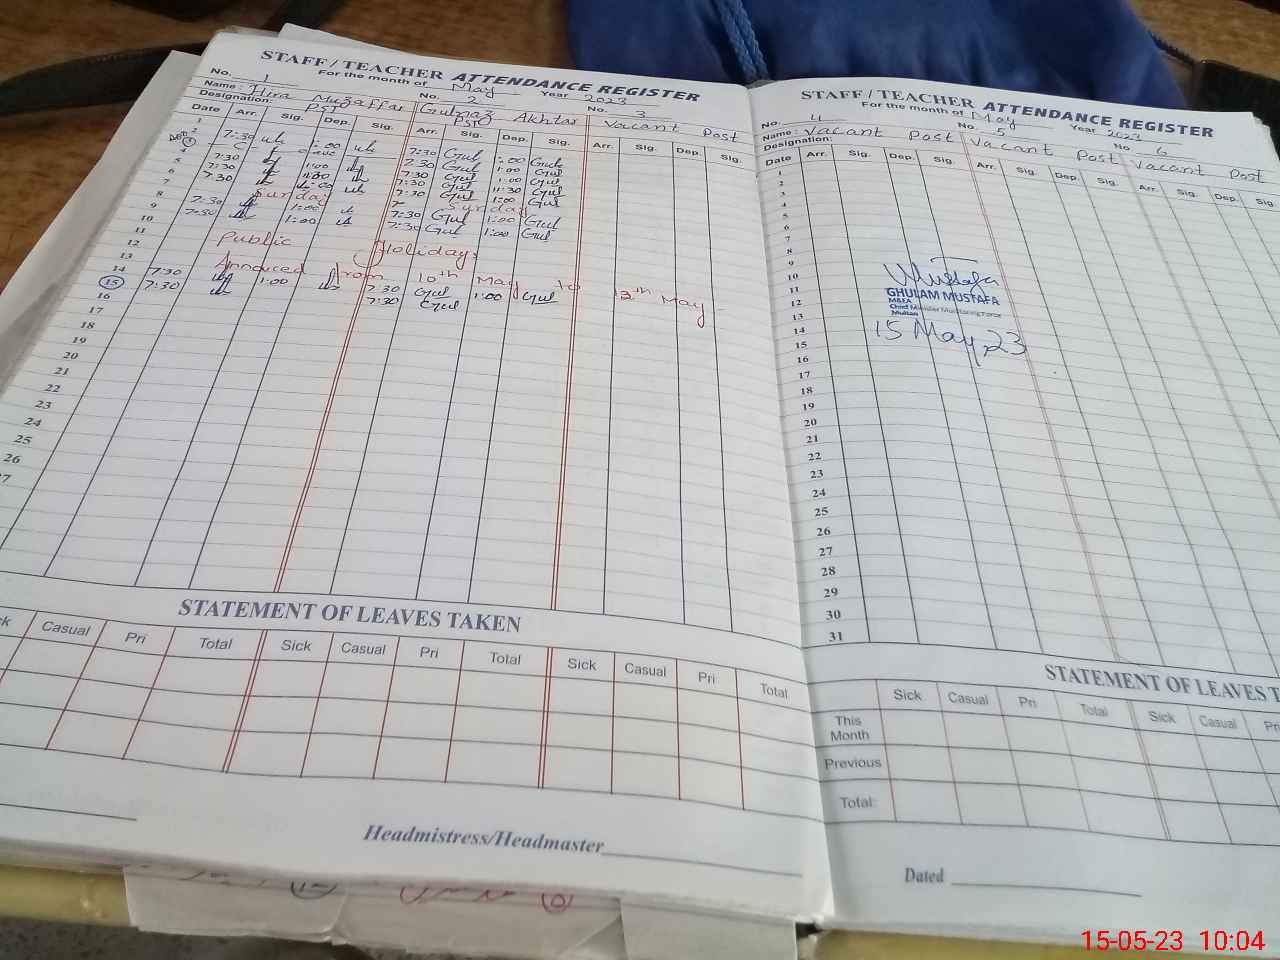 STAFF / TEACHER ATTENDANCE REGISTER
For the month of May Year 2023
No. 1 No. 2 No. 3
Name: Hira Muzaffar Gulnaz Akhtar Vacant Post
Designation: PST PST
Date Arr. Sig. Dep. Sig. Arr. Sig. Dep. Sig. Arr. Sig. Dep. Sig.
1
2 7:30 1:00 7:30 Gul 1:00 Gul
7:30 Gul 1:00 Gul
4 7:30 1:00 7:30 Gul 1:00 Gul
5 7:30 1:00 7:30 Gul 11:30 Gul
6 7:30 7:30 Gul 1:00 Gul
7 Sunday Sunday
8 7:30 1:00 7:30 Gul 1:00 Gul
9 7:30 1:00 7:30 Gul 1:00 Gul
10
11 Public Holiday
12
13 Annouced from 10th May to 12th May
14 7:30 1:00 7:30 Gul 1:00 Gul
15 7:30 7:30 Gul
16
17
18
19
20
21
22
23
24
25
26
STATEMENT OF LEAVES TAKEN
Casual Pri Total Sick Casual Pri Total Sick Casual Pri Total
Headmistress/Headmaster
STAFF / TEACHER ATTENDANCE REGISTER
For the month of May Year 2023
No. 4 No. 5 No. 6
Name: Vacant Post Vacant Post Vacant Post
Designation:
Date Arr. Sig. Dep. Sig. Arr. Sig. Dep. Sig. Arr. Sig. Dep. Sig.
1
2
3
4
5
6
7
8
9
10
11
12
13
14
15
16
17
18
19
20
21
22
23
24
25
26
27
28
29
30
31
Mustafa
GHULAM MUSTAFA
M&EA
Chief Minister Monitoring Force
Multan
15 May, 23
STATEMENT OF LEAVES
Sick Casual Pri Total Sick Casual
This Month
Previous
Total:
Dated
15-05-23 10:04